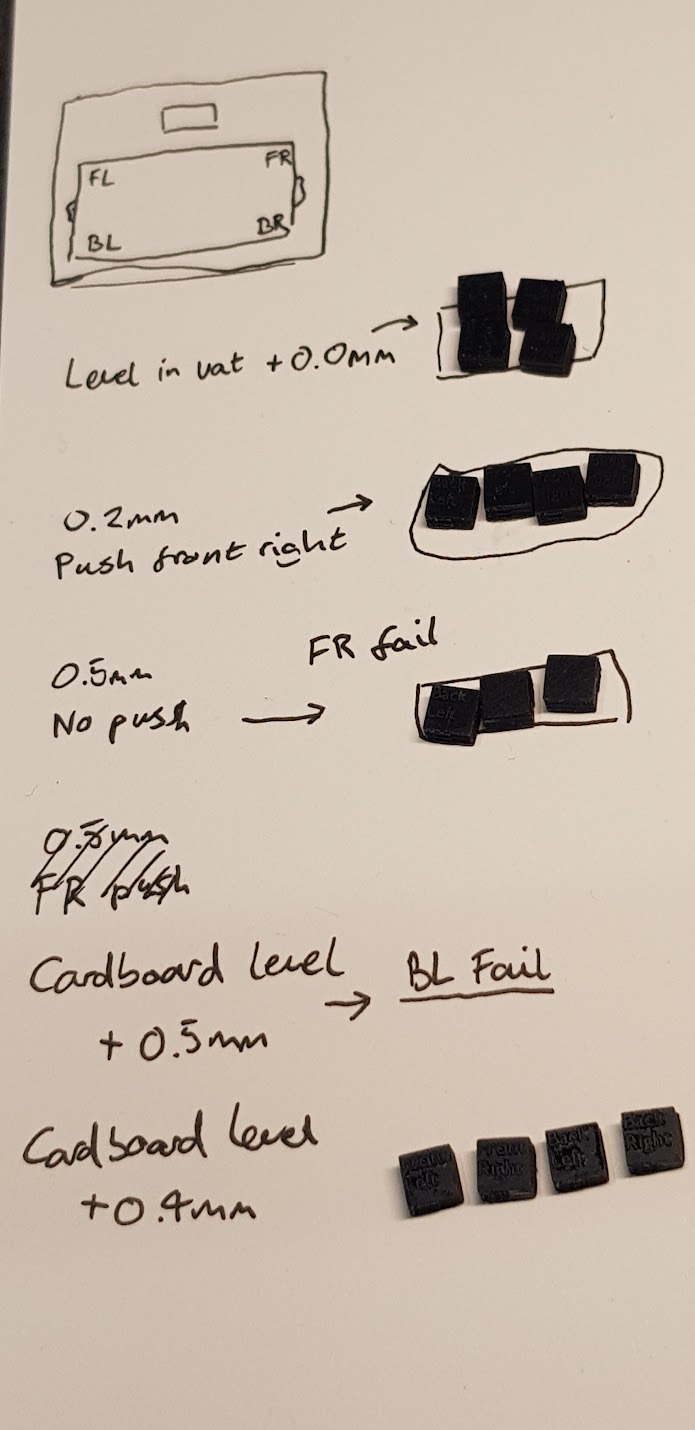 FL FR
BL BR
Level in vat + 0.0mm
0.2mm
Push front right
FR fail
0.5mm
No push
Back
Left
0.5mm
FR push
Cardboard level
+ 0.5mm
BL Fail
Cardboard level
+0.4mm
Front
Left
Front
Right
Back
Left
Back
Right